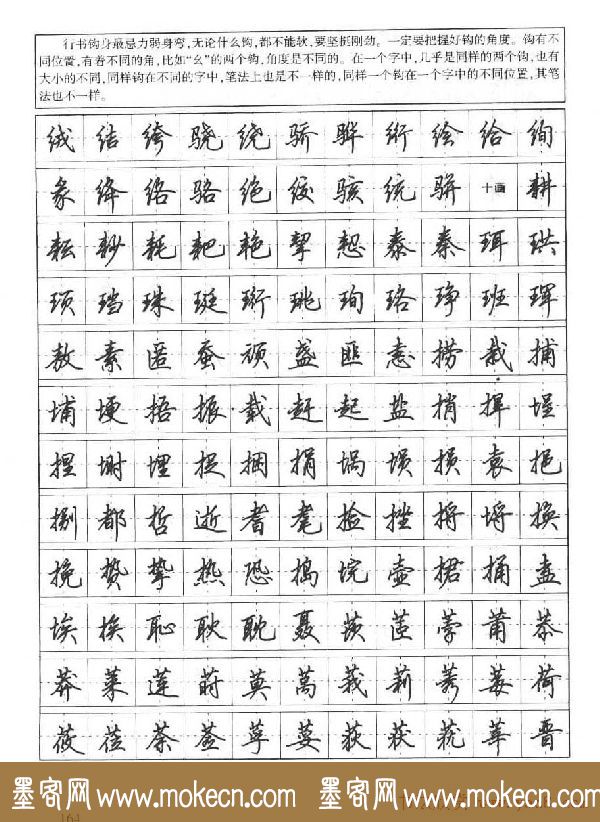 行书钩身最忌力弱身弯,无论什么钩,都不能软,要坚挺刚劲。一定要把握好钩的角度。钩有不
同位置,有着不同的角,比如“幺”的两个钩,角度是不同的。在一个字中,几乎是同样的两个钩,也有
大小的不同,同样钩在不同的字中,笔法上也是不一样的,同样一个钩在一个字中的不同位置,其笔
法也不一样。
绒 结 绔 骁 绕 骄 骅 绗 绘 给 绚
彖 绛 络 骆 绝 绞 骇 统 骈 十画 耕
耘 耖 耗 耙 艳 挈 恝 泰 秦 珥 珙
顼 珰 珠 珽 珩 珧 珣 珞 琤 班 珲
敖 素 匿 蚕 顽 盏 匪 恚 捞 栽 捕
埔 埂 捂 振 载 赶 起 盐 捎 捍 埕
捏 埘 埋 捉 捆 捐 埚 埙 损 袁 挹
捌 都 哲 逝 耆 耄 捡 挫 捋 埒 换
挽 贽 挚 热 恐 捣 垸 壶 捃 捅 盍
埃 挨 耻 耿 耽 聂 莰 茝 莆 恭
莽 莱 莲 莳 莫 莴 莪 莉 莠 莓 荷
莜 莅 荼 莶 莩 荽 荻 获 莸 莘 晋
164
墨客网 www.mokecn.com 墨客网 www.mokecn.com